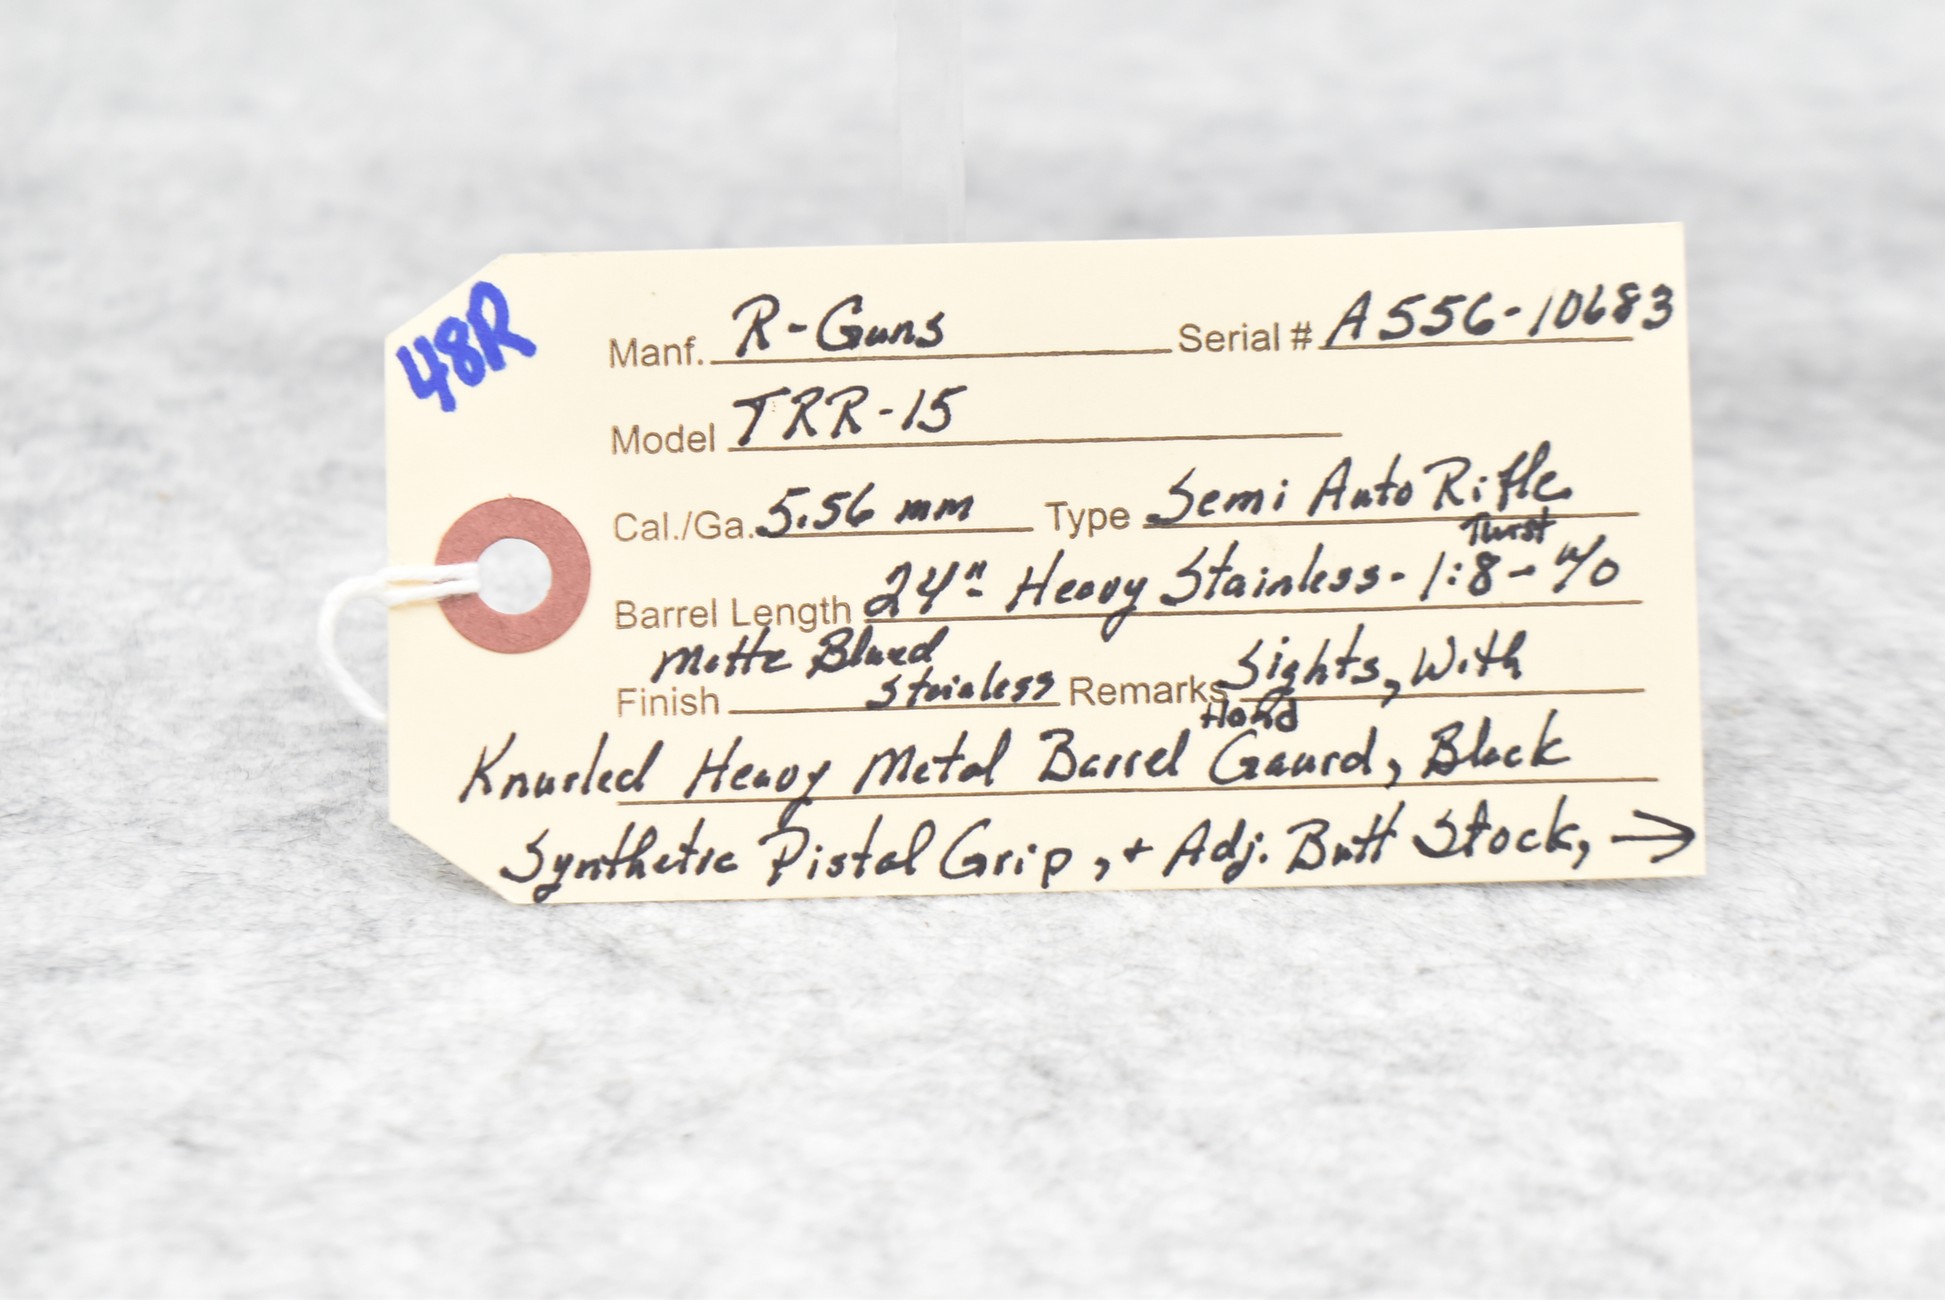 48R
Manf. R-Guns Serial # A556-10683
Model TRR-15
Cal./Ga. 5.56 mm Type Semi Auto Rifle
Twist
Barrel Length 24" Heavy Stainless - 1:8 - w/o
Matte Blued
Finish Stainless Remarks Sights, With
Hand
Knurled Heavy Metal Barrel Gaurd, Black
Synthetic Pistal Grip, + Adj. Butt Stock, →